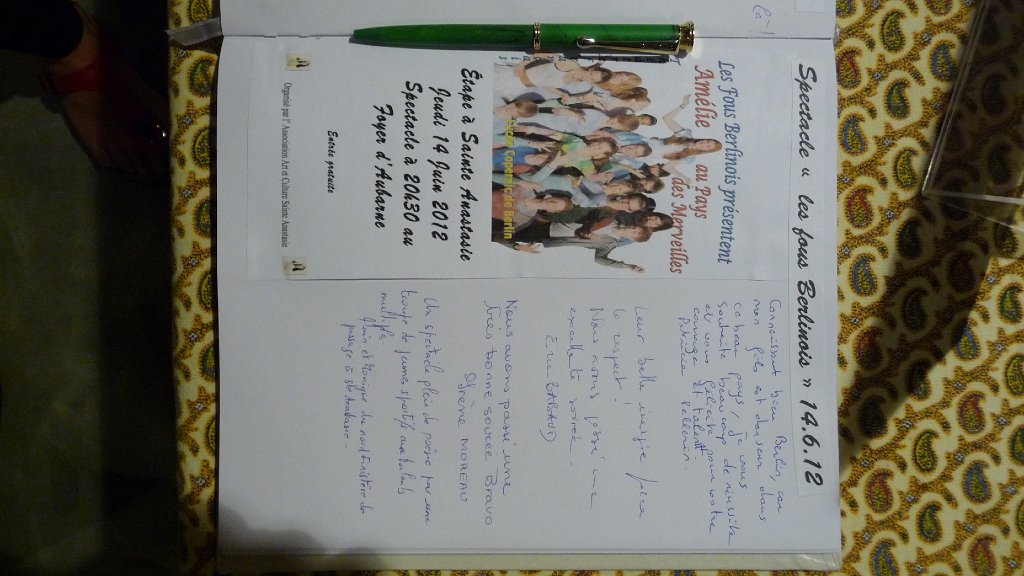 Spectacle « les fous Berlinois » 14.6.12
Les Fous Berlinois présentent
Amélie au Pays
des Merveilles
Étape à Sainte Anastasie
Jeudi 14 Juin 2012
Spectacle à 20h30 au
Foyer d'Aubarne
Entrée gratuite
Organisé par l' Association Art et Culture Sainte Anastasie
Connaissant bien Berlin, car
mon fils est danseur dans
ce beau pays, je vous
souhaite beaucoup de réussite
et vous félicite pour votre
courage et talent.
Leur belle énergie
le respect!
Nous avons passé une
excellente soirée.
Nous avons passé une
très bonne soirée Bravo
Irène moreno
Un spectacle plein de poésie par une
troupe de jeunes sportifs aux talents
multiples.
Alain et Monique du nord Finistère de
passage à Ste Anastasie.